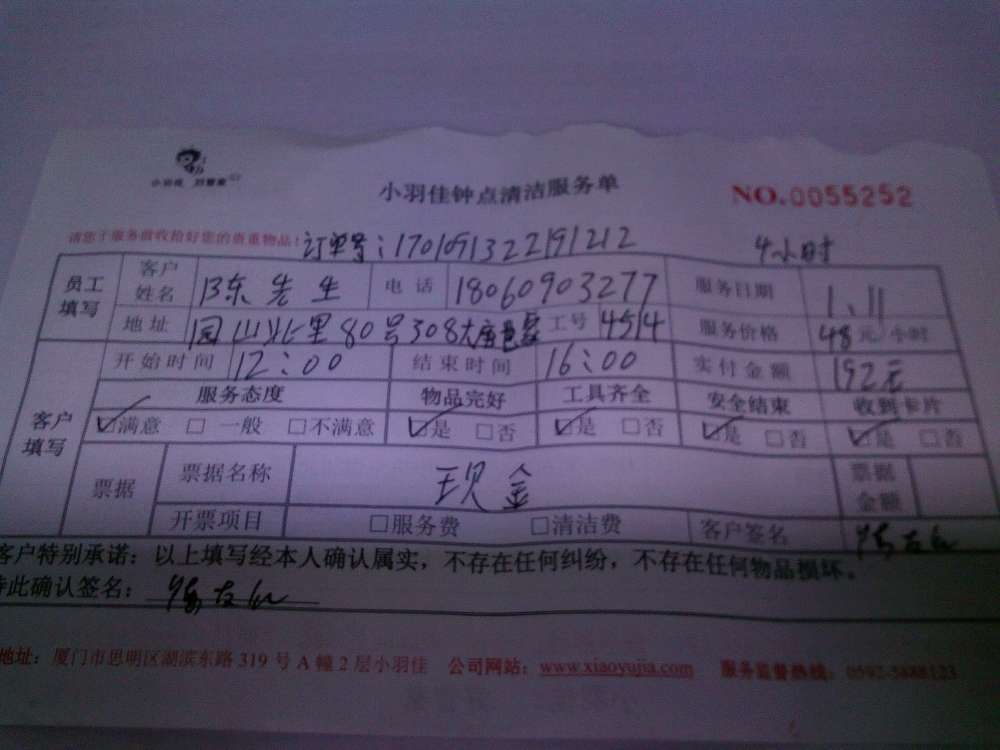 小羽佳
小羽佳钟点清洁服务单
NO.0055252
请您于服务前收拾好您的贵重物品!
订单号:1701091322191212
4小时
员工填写 客户姓名 陈先生 电话 18060903277 服务日期 1.11
地址 园山北里80号308 工号 4514 服务价格 48元/小时
开始时间 12:00 结束时间 16:00 实付金额 192元
客户填写 服务态度 物品完好 工具齐全 安全结束 收到卡片
☑满意 □一般 □不满意 ☑是 □否 ☑是 □否 ☑是 □否 ☑是 □否
票据 票据名称 现金 票据金额
开票项目 □服务费 □清洁费 客户签名
客户特别承诺:以上填写经本人确认属实,不存在任何纠纷,不存在任何物品损坏。
特此确认签名:
地址:厦门市思明区湖滨东路319号A幢2层小羽佳 公司网站:www.xiaoyujia.com 服务监督热线: